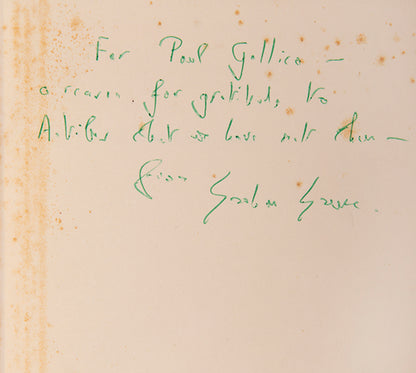 For Paul Gallico —
a reason for gratitude to
Antibes that we have met there —
from Graham Greene